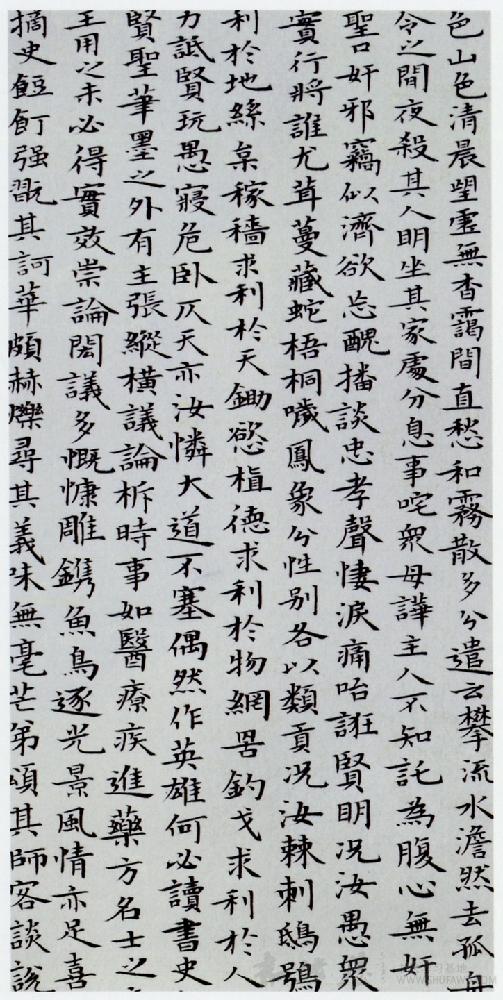 色山色清晨望虛無杳靄間直愁和霧散多分遣云攀流水澹然去孤舟
令之間夜殺其人明坐其家處分息事咤眾母譁主人不知託為腹心無奸
聖口奸邪竊似濟欲忘醜播談忠孝聲悽淚痛咍誑賢明況汝愚眾
實行將誰尤茸蔓藏蛇梧桐噦鳳象分性別各以類貢況汝棘刺鴟鴞
利於地絲枲稼穡求利於天鋤慾植德求利於物網罟釣弋求利於人
力詆賢玩愚寢危臥仄天亦汝憐大道不塞偶然作英雄何必讀書史
賢聖筆墨之外有主張縱橫議論析時事如醫療疾進藥方名士之
主用之未必得實效崇論閎議多慨慷雕鐫魚鳥逐光景風情亦足喜
摘史餖飣强翫其詞華頗赫爍尋其義味無毫芒弟頌其師客談說